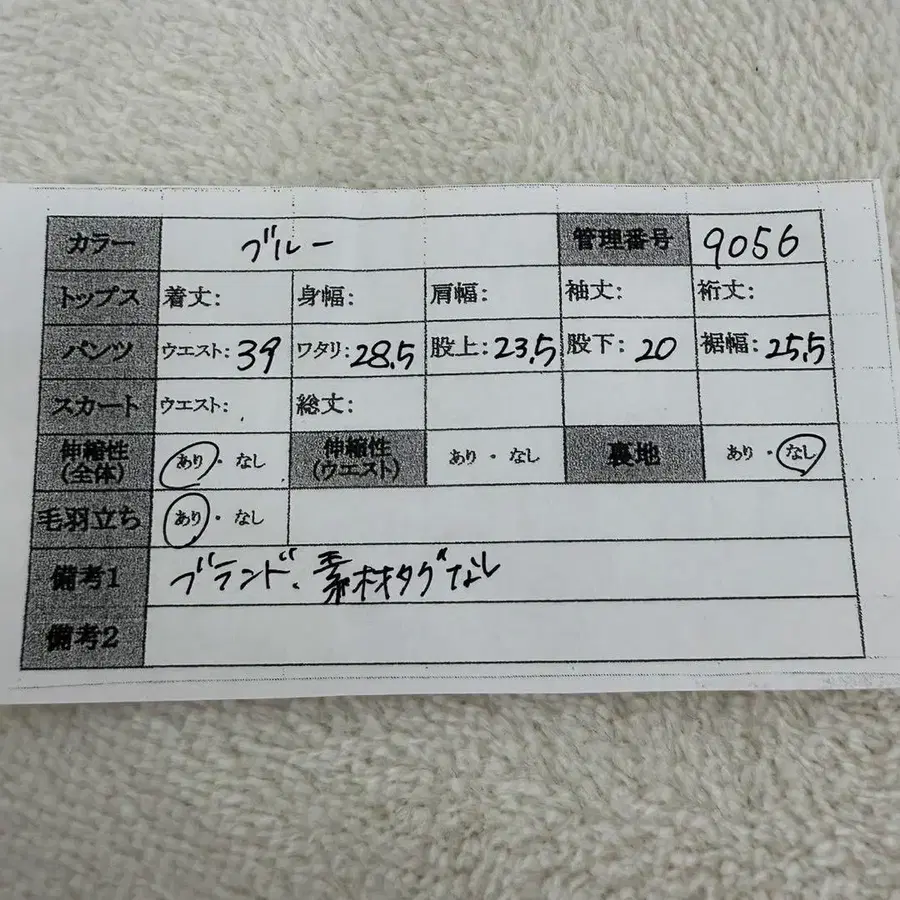 カラー ブルー 管理番号 9056
トップス 着丈: 身幅: 肩幅: 袖丈: 裄丈:
パンツ ウエスト: 39 ワタリ: 28.5 股上: 23.5 股下: 20 裾幅: 25.5
スカート ウエスト: 総丈:
伸縮性(全体) あり・なし 伸縮性(ウエスト) あり・なし 裏地 あり・なし
毛羽立ち あり・なし
備考1 ブランド、素材タグなし
備考2